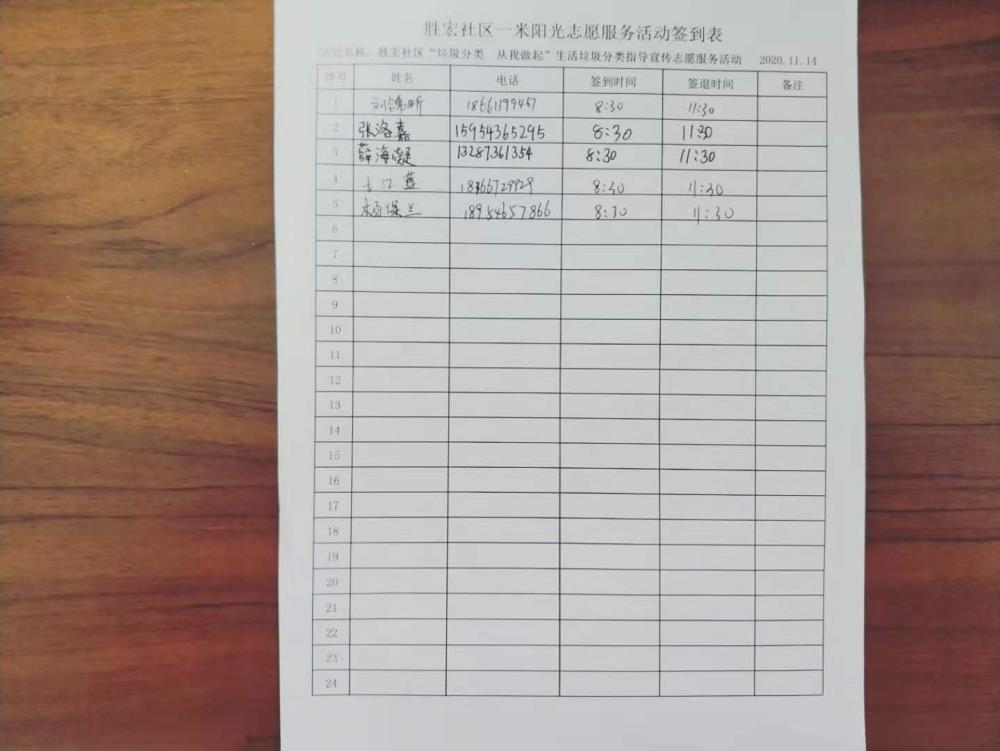 胜宏社区一米阳光志愿服务活动签到表
活动名称：胜宏社区“垃圾分类 从我做起”生活垃圾分类指导宣传志愿服务活动 2020.11.14
序号 姓名 电话 签到时间 签退时间 备注
1 8:30 11:30
2 张洛嘉 15954365295 8:30 11:30
3 薛海凝 13287361354 8:30 11:30
4 8:30 11:30
5 杨保兰 18954657866 8:30 11:30
6
7
8
9
10
11
12
13
14
15
16
17
18
19
20
21
22
23
24